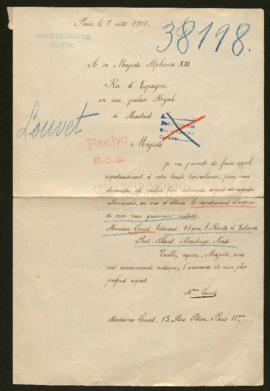 Paris le 7 août 1918.
38198.
A sa Majesté Alphonse XIII
Roi d'Espagne
en son palais Royal
à Madrid
Louvet
Fecho
Majesté
je me permets de faire appel
respectueusement à votre haute bienveillance, pour vous
demander de
allemandes, en vue d'obtenir le rapatriement d'urgence
de mon mari prisonnier malade.
Monsieur Louvet, Edouard
Nord.
Veuillez agréer, Majesté, avec
mes remerciements anticipés, l'assurance de mon plus
profond respect.
Mme Louvet
Madame Louvet, 13, Rue Pétion, Paris 11eme